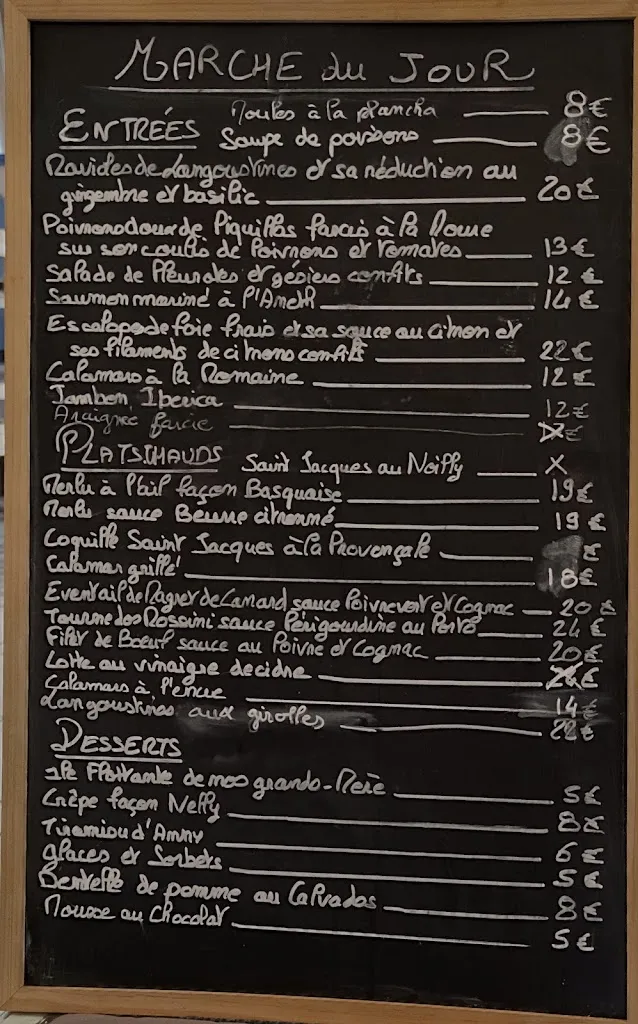 MARCHE du JOUR
Moules à la plancha 8€
ENTRÉES Soupe de poissons 8€
Ravioles de Langoustines et sa réduction au
gingembre et basilic 20€
Poivrons doux de Piquillos farcis à la Morue
sur son coulis de Poivrons et Tomates 13€
Salade de Pleurotes et gésiers confits 12€
Saumon mariné à l'Aneth 14€
Escalope de foie frais et sa sauce au citron et
ses filaments de citrons confits 22€
Calamars à la Romaine 12€
Jambon Iberica 12€
Araignée farcie X€
PLATS CHAUDS Saint Jacques au Noilly X
Merlu à l'ail façon Basquaise 19€
Merlu sauce Beurre citronné 19€
Coquille Saint Jacques à la Provençale €
Calamar grillé 18€
Eventail de Magret de Canard sauce Poivre vert et Cognac 20€
Tournedos Rossini sauce Périgourdine au Porto 24€
Filet de Boeuf sauce au Poivre et Cognac 20€
Lotte au vinaigre de cidre €
Calamars à l'encre 14€
Langoustines aux girolles 22€
DESSERTS
Ile Flottante de mes grands-Mère 5€
Crêpe façon Nelly 8€
Tiramisu d'Anny 6€
glaces et Sorbets 5€
Dentelle de pomme au Calvados 8€
Mousse au Chocolat 5€